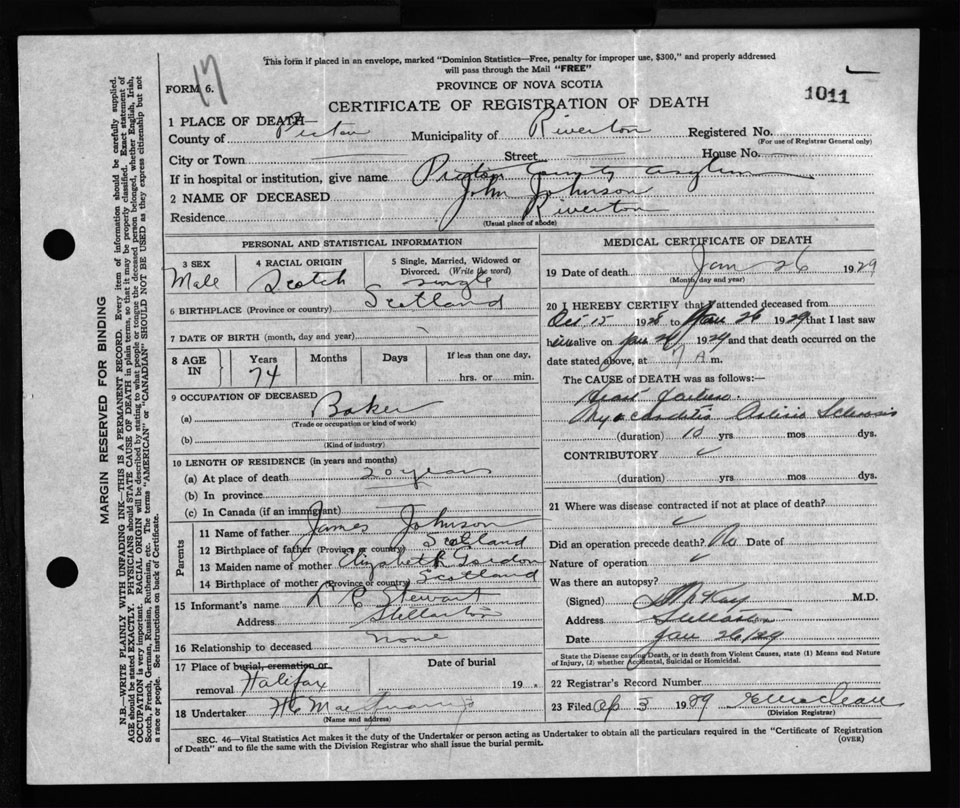 This form if placed in an envelope, marked "Dominion Statistics—Free, penalty for improper use, $300," and properly addressed
will pass through the Mail "FREE"
FORM 6.
17
PROVINCE OF NOVA SCOTIA
CERTIFICATE OF REGISTRATION OF DEATH
1011
1 PLACE OF DEATH
County of Pictou Municipality of Riverton Registered No.
(For use of Registrar General only)
City or Town Street House No.
If in hospital or institution, give name Pictou County Asylum
2 NAME OF DECEASED John Johnson
Residence Riverton
(Usual place of abode)
PERSONAL AND STATISTICAL INFORMATION
3 SEX 4 RACIAL ORIGIN 5 Single, Married, Widowed or
Divorced. (Write the word)
Male Scotch single
6 BIRTHPLACE (Province or country) Scotland
7 DATE OF BIRTH (month, day and year)
8 AGE IN Years Months Days If less than one day,
74 hrs. or min.
9 OCCUPATION OF DECEASED
(a) Baker
(Trade or occupation or kind of work)
(b)
(Kind of industry)
10 LENGTH OF RESIDENCE (in years and months)
(a) At place of death 20 years
(b) In province
(c) In Canada (if an immigrant)
Parents
11 Name of father James Johnson
12 Birthplace of father (Province or country) Scotland
13 Maiden name of mother Elizabeth Gordon
14 Birthplace of mother (Province or country) Scotland
15 Informant's name L C Stewart
Address Stellarton
16 Relationship to deceased none
17 Place of burial, cremation or Date of burial
removal Halifax 19
18 Undertaker
(Name and address)
MEDICAL CERTIFICATE OF DEATH
19 Date of death Jan 26 1929
(Month, day and year)
20 I HEREBY CERTIFY that I attended deceased from
Oct. 15 1928 to Jan 26 1929 that I last saw
him alive on Jan 26 1929 and that death occurred on the
date stated above, at 7 A m.
The CAUSE of DEATH was as follows:
Heart failure.
Myocarditis Arterio Sclerosis
(duration) 10 yrs mos dys.
CONTRIBUTORY
(duration) yrs mos dys.
21 Where was disease contracted if not at place of death?
Did an operation precede death? No Date of
Nature of operation
Was there an autopsy?
(Signed) M.D.
Address Stellarton
Date Jan 26/29
State the Disease causing Death, or in death from Violent Causes, state (1) Means and Nature
of Injury, (2) whether Accidental, Suicidal or Homicidal.
22 Registrar's Record Number
23 Filed Ap 3 1929
(Division Registrar)
SEC. 46—Vital Statistics Act makes it the duty of the Undertaker or person acting as Undertaker to obtain all the particulars required in the "Certificate of Registration
of Death" and to file the same with the Division Registrar who shall issue the burial permit. (OVER)
MARGIN RESERVED FOR BINDING
N.B.—WRITE PLAINLY WITH UNFADING INK—THIS IS A PERMANENT RECORD. Every item of information should be carefully supplied.
AGE should be stated EXACTLY. PHYSICIANS should STATE CAUSE OF DEATH in plain terms, so that it may be properly classified. Exact statement of
OCCUPATION is very important. RACIAL ORIGIN will be described by stating to what people or tongue the deceased person belonged, whether English, Irish,
Scotch, French, German, Russian, Ruthenian, etc. The terms "AMERICAN" or "CANADIAN" SHOULD NOT BE USED as they express citizenship but not
a race or people. See instructions on back of Certificate.